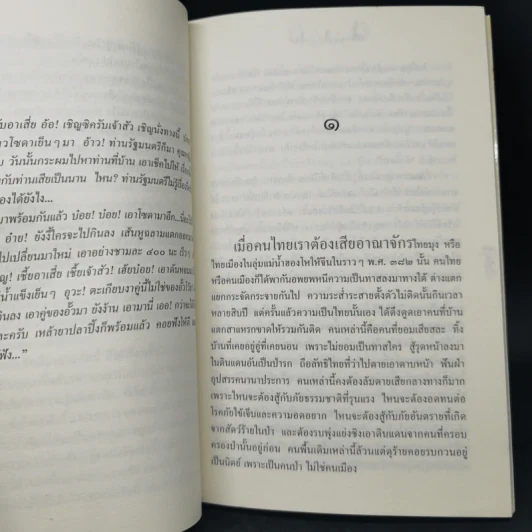 บอาเสี่ย อ้อ! เชิญซิครับเจ้าสัว เชิญนั่งทางนี้
วโซดาเย็นๆ มา อ้าว! ท่านรัฐมนตรีก็มา
บ วันนั้นกระผมไปหาท่านที่บ้าน เอาเช็คไปให้
กับท่านเสียเป็นนาน ไหน? ท่านรัฐมนตรีไม่รู้
องได้ยังไง...
มาพร้อมกันแล้ว บ๋อย! บ๋อย! เอาโซดามาอีก...
อ๋าย! ยังงี้ใครจะไปกินลง เส้นหูฉลามแตกออก
ไปเปลี่ยนมาใหม่ เอาอย่างชามละ ๔๐๐ นะ
ญ! เชี้ยอาเสี่ย เชี้ยเจ้าสัว! เฮ้ยบ๋อย!
น้ำแข็งเย็นๆ อุวะ! ตะเกียบงาคู่นี้ไม่ใช่ของ
กินลง เอาคู่ของอั๊วมา ยังง้าน เอามานี่ เออ!
ละครับ เหล้ายาปลาปิ้งก็พร้อมแล้ว คอยฟังให้ดี
ฟัง..."
๑
เมื่อคนไทยเราต้องเสียอาณาจักรไทยมุง หรือ
ไทยเมืองในลุ่มแม่น้ำฮองโหให้จีนในราวๆ พ.ศ. ๓๘๒ นั้น คนไทย
หรือคนเมืองก็ได้พากันอพยพหนีความเป็นทาสลงมาทางใต้ ต่างแตก
แยกกระจัดกระจายกันไป ความระส่ำระสายตั้งตัวไม่ติดนั้นกินเวลา
หลายสิบปี แต่ครั้นแล้วความเป็นไทยนั้นเอง ได้ดึงดูดเอาคนที่บ้าน
แตกสาแหรกขาดให้รวมกันติด คนเหล่านี้คือคนที่ยอมเสียสละ ทิ้ง
บ้านที่เคยอยู่อู่ที่เคยนอน เพราะไม่ยอมเป็นทาสใคร สู้รุดหน้าลงมา
ในดินแดนอันเป็นป่ารก ถือลัทธิไทยที่ว่าตายเอาดาบหน้า ฟันฝ่า
อุปสรรคนานาประการ คนเหล่านี้คงต้องล้มตายเสียกลางทางก็มาก
เพราะไหนจะต้องสู้กับภัยธรรมชาติที่รุนแรง ไหนจะต้องอดทนต่อ
โรคภัยไข้เจ็บและความอดอยาก ไหนจะต้องสู้กับภัยอันตรายที่เกิด
จากสัตว์ร้ายในป่า และต้องรบพุ่งแย่งชิงเอาดินแดนจากคนที่ครอบ
ครองป่านั้นอยู่ก่อน คนพื้นเดิมเหล่านี้ล้วนแต่ดุร้ายคอยรบกวนอยู่
เป็นนิตย์ เพราะเป็นคนป่า ไม่ใช่คนเมือง